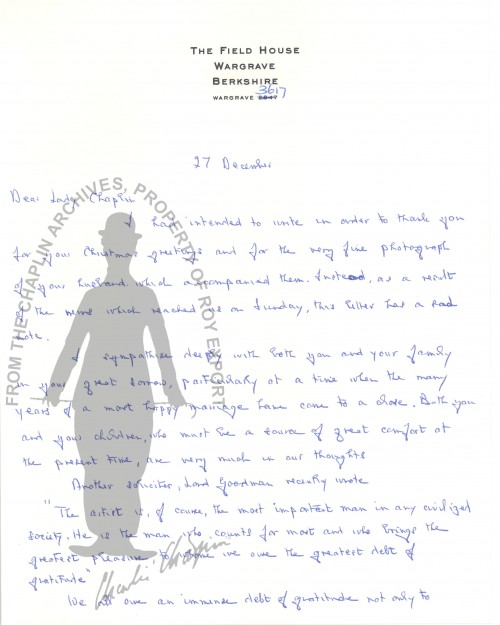 THE FIELD HOUSE
WARGRAVE
BERKSHIRE
WARGRAVE 2847 3617
27 December
Dear Lady Chaplin
I had intended to write in order to thank you
for your Christmas greetings and for the very fine photograph
of your husband which accompanied them. Instead, as a result
of the news which reached us on Sunday, this letter has a sad
note.
I sympathise deeply with both you and your family
in your great sorrow, particularly at a time when the many
years of a most happy marriage have come to a close. Both you
and your children, who must be a source of great comfort at
the present time, are very much in our thoughts
Another solicitor, Lord Goodman recently wrote
"The artist is, of course, the most important man in any civilized
society. He is the man who counts for most and who brings the
greatest pleasure to whom we owe the greatest debt of
gratitude"
We all owe an immense debt of gratitude not only to
FROM THE CHAPLIN ARCHIVES, PROPERTY OF ROY EXPORT
Charlie Chaplin